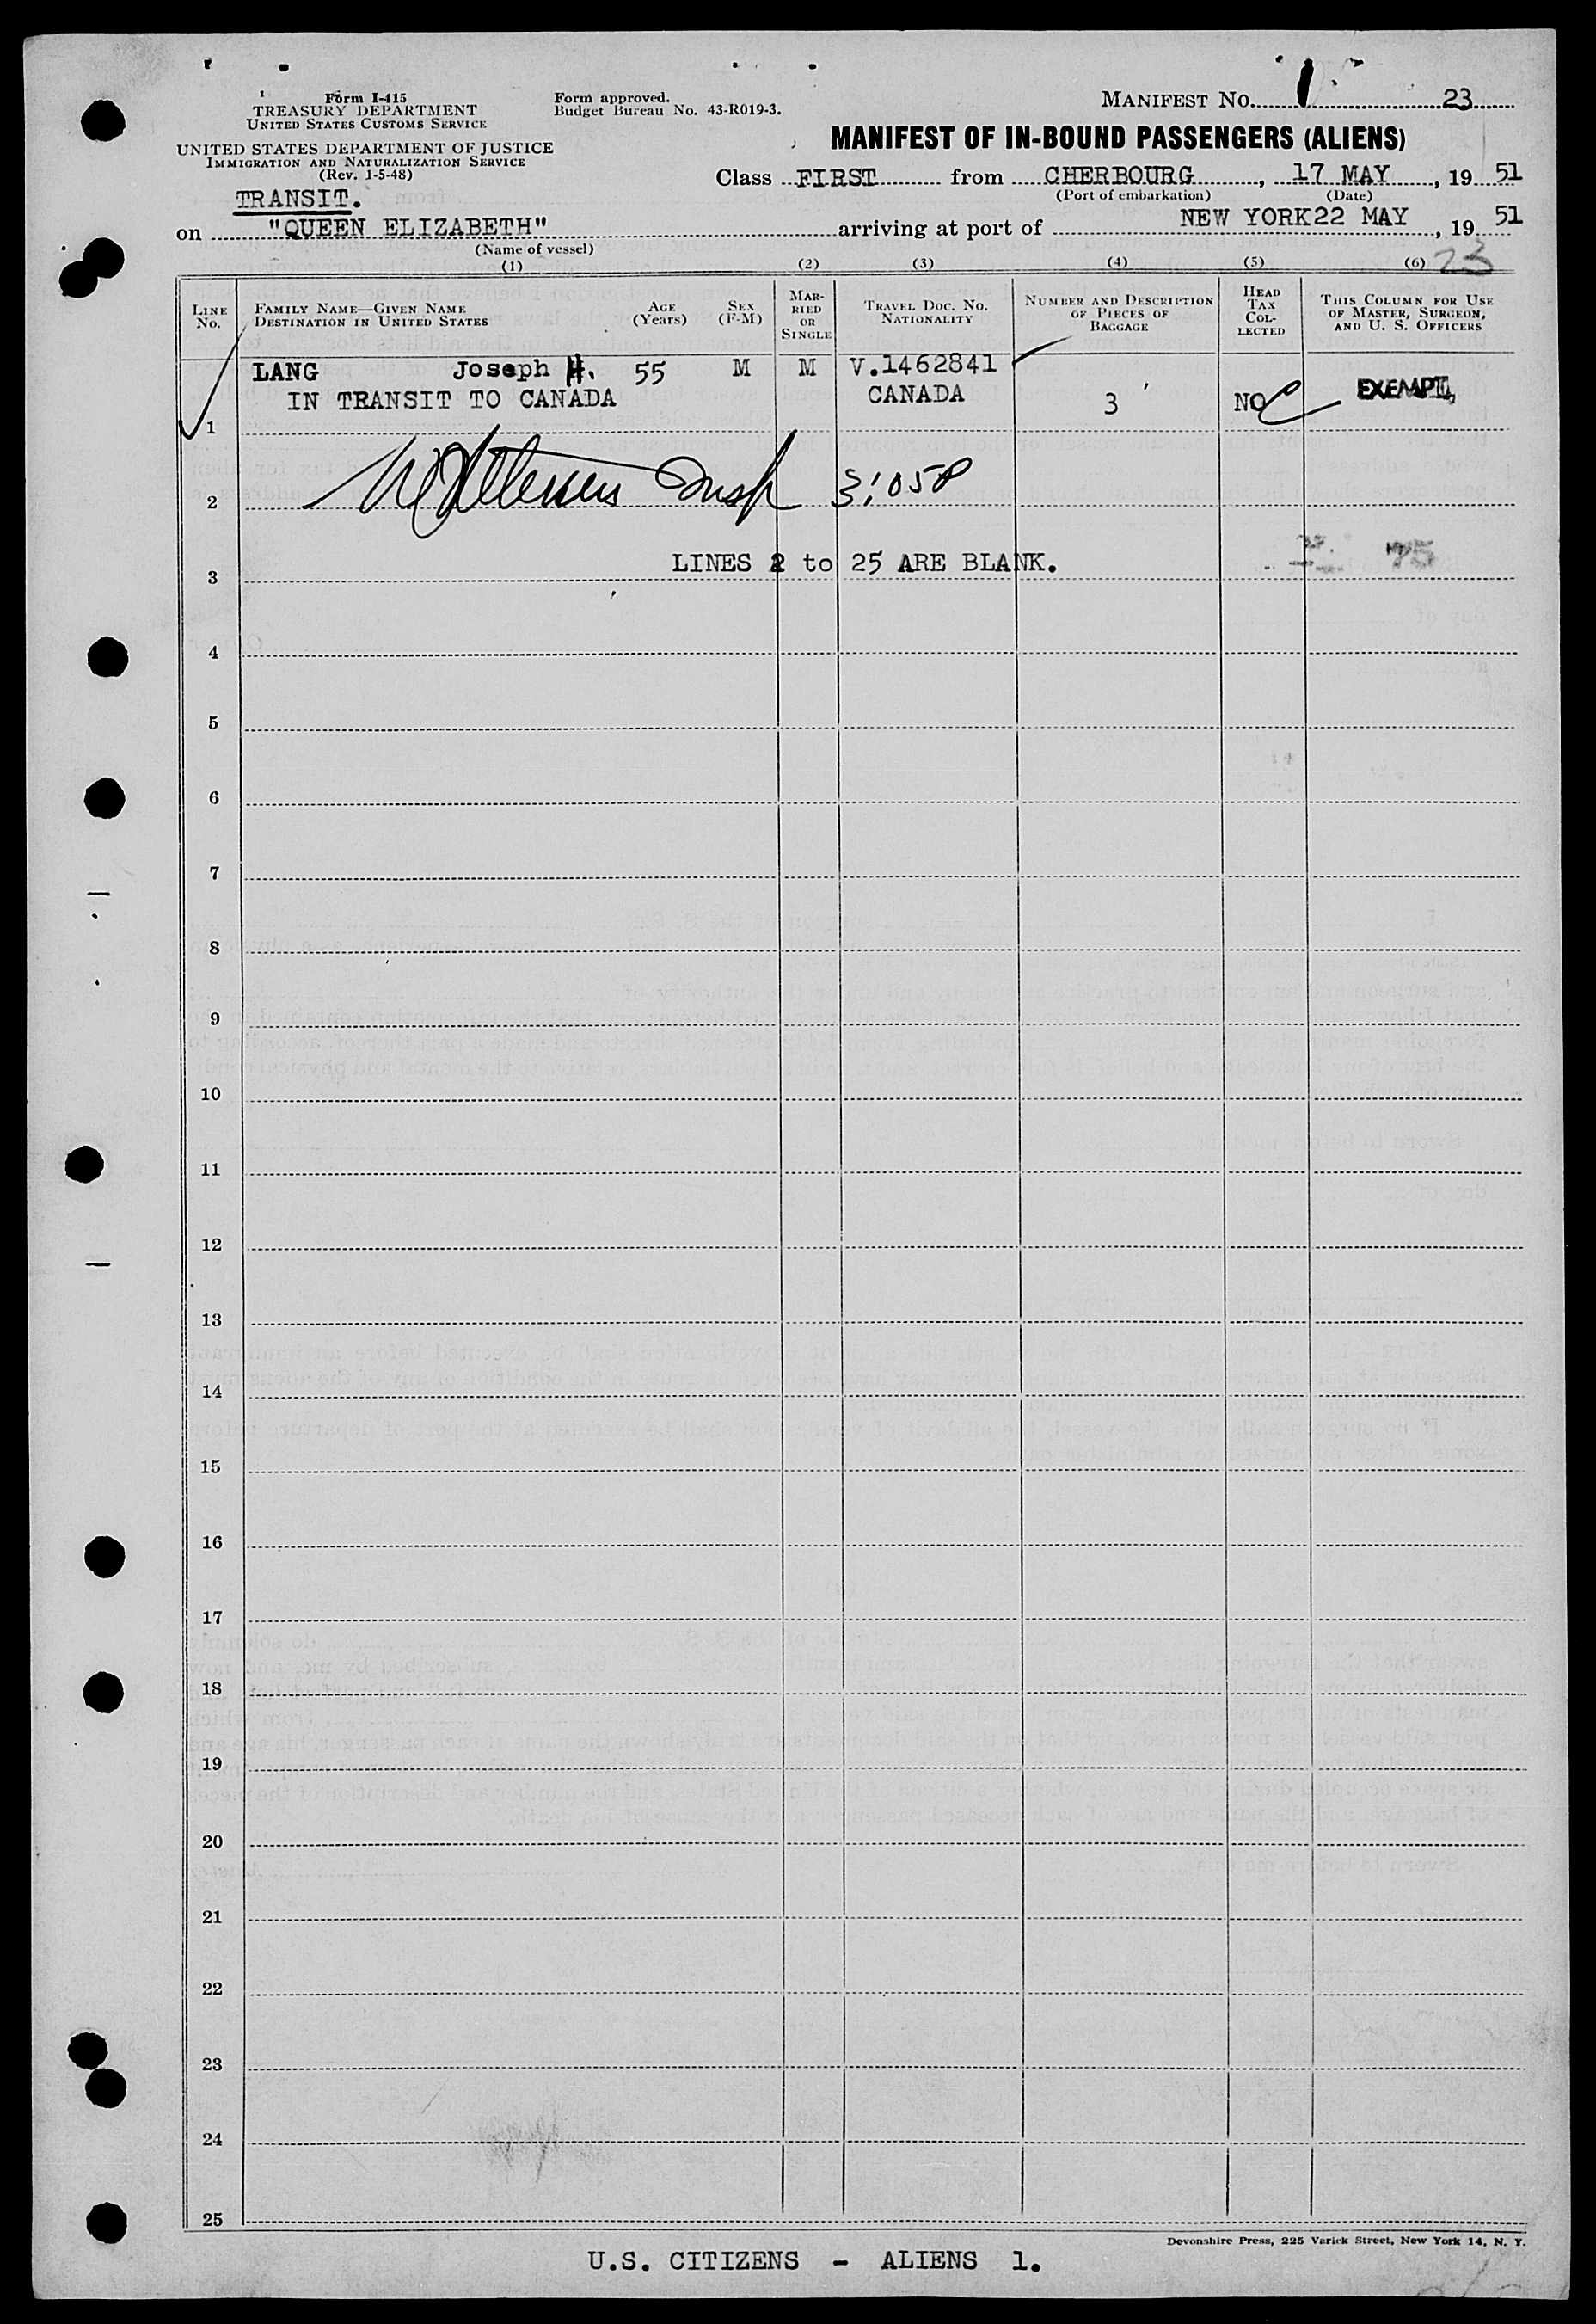 Form I-415
TREASURY DEPARTMENT
UNITED STATES CUSTOMS SERVICE
UNITED STATES DEPARTMENT OF JUSTICE
IMMIGRATION AND NATURALIZATION SERVICE
(Rev. 1-5-48)
Form approved.
Budget Bureau No. 43-R019-3.
MANIFEST NO. 1 23
MANIFEST OF IN-BOUND PASSENGERS (ALIENS)
Class FIRST from CHERBOURG, 17 MAY, 19 51
(Port of embarkation) (Date)
TRANSIT.
on "QUEEN ELIZABETH" arriving at port of NEW YORK 22 MAY, 19 51
(Name of vessel)
23
(1) (2) (3) (4) (5) (6)
LINE No.
FAMILY NAME—GIVEN NAME
DESTINATION IN UNITED STATES
AGE (Years)
SEX (F-M)
MARRIED OR SINGLE
TRAVEL DOC. NO.
NATIONALITY
NUMBER AND DESCRIPTION OF PIECES OF BAGGAGE
HEAD TAX COLLECTED
THIS COLUMN FOR USE OF MASTER, SURGEON, AND U. S. OFFICERS
LANG Joseph H. 55 M M V.1462841
IN TRANSIT TO CANADA CANADA 3 NO EXEMPT,
1
Insp 3:05P
2
LINES 2 to 25 ARE BLANK. 75
3
4
5
6
7
8
9
10
11
12
13
14
15
16
17
18
19
20
21
22
23
24
25
Devonshire Press, 225 Varick Street, New York 14, N. Y.
U.S. CITIZENS - ALIENS 1.